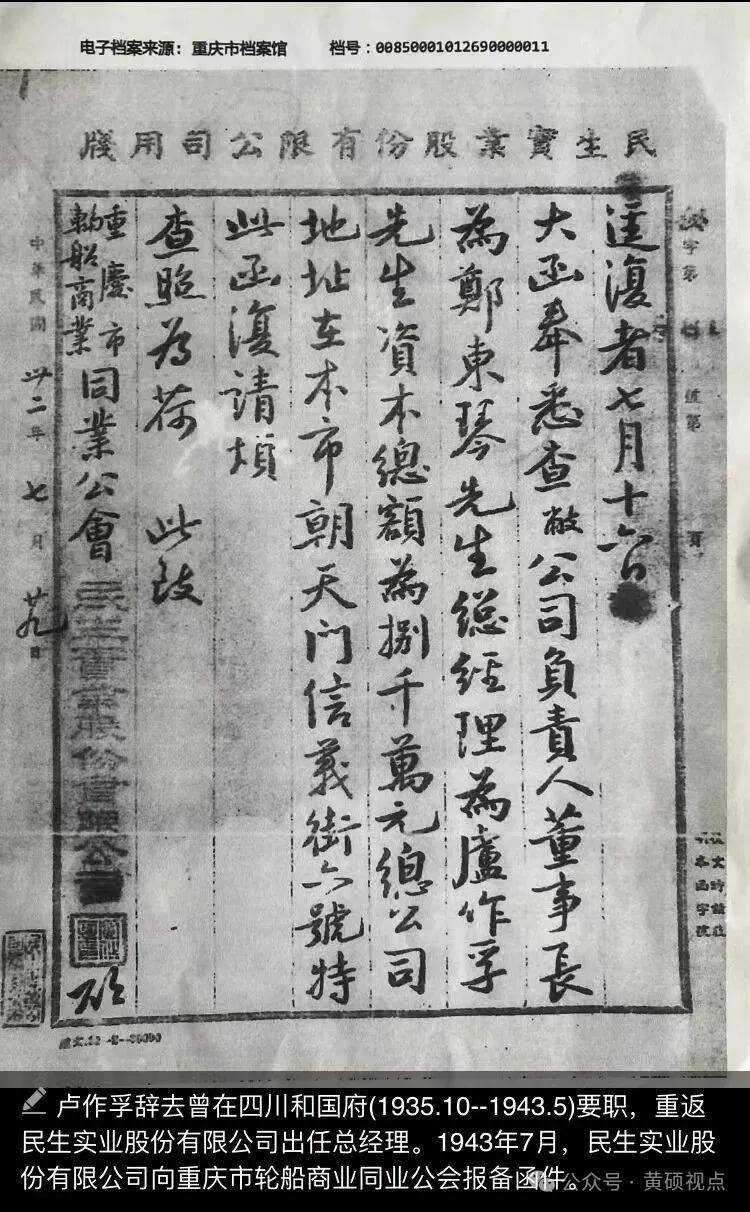 电子档案来源：重庆市档案馆 档号：00850001012690000011
民生實業股份有限公司用牋
逕復者七月十六日
大函奉悉查敝公司負責人董事長
為鄭東琴先生總經理為盧作孚
先生資本總額為捌千萬元總公司
地址在本市朝天门信義街六號特
此函復請煩
查照為荷 此致
重慶市
輪船商業
同業公會
民生實業股份有限公司
啟
中華民國卅二年七月廿九日
字第
號第
頁
卢作孚辞去曾在四川和国府(1935.10--1943.5)要职，重返
民生实业股份有限公司出任总经理。1943年7月，民生实业股
份有限公司向重庆市轮船商业同业公会报备函件。
公众号·黄硕视点